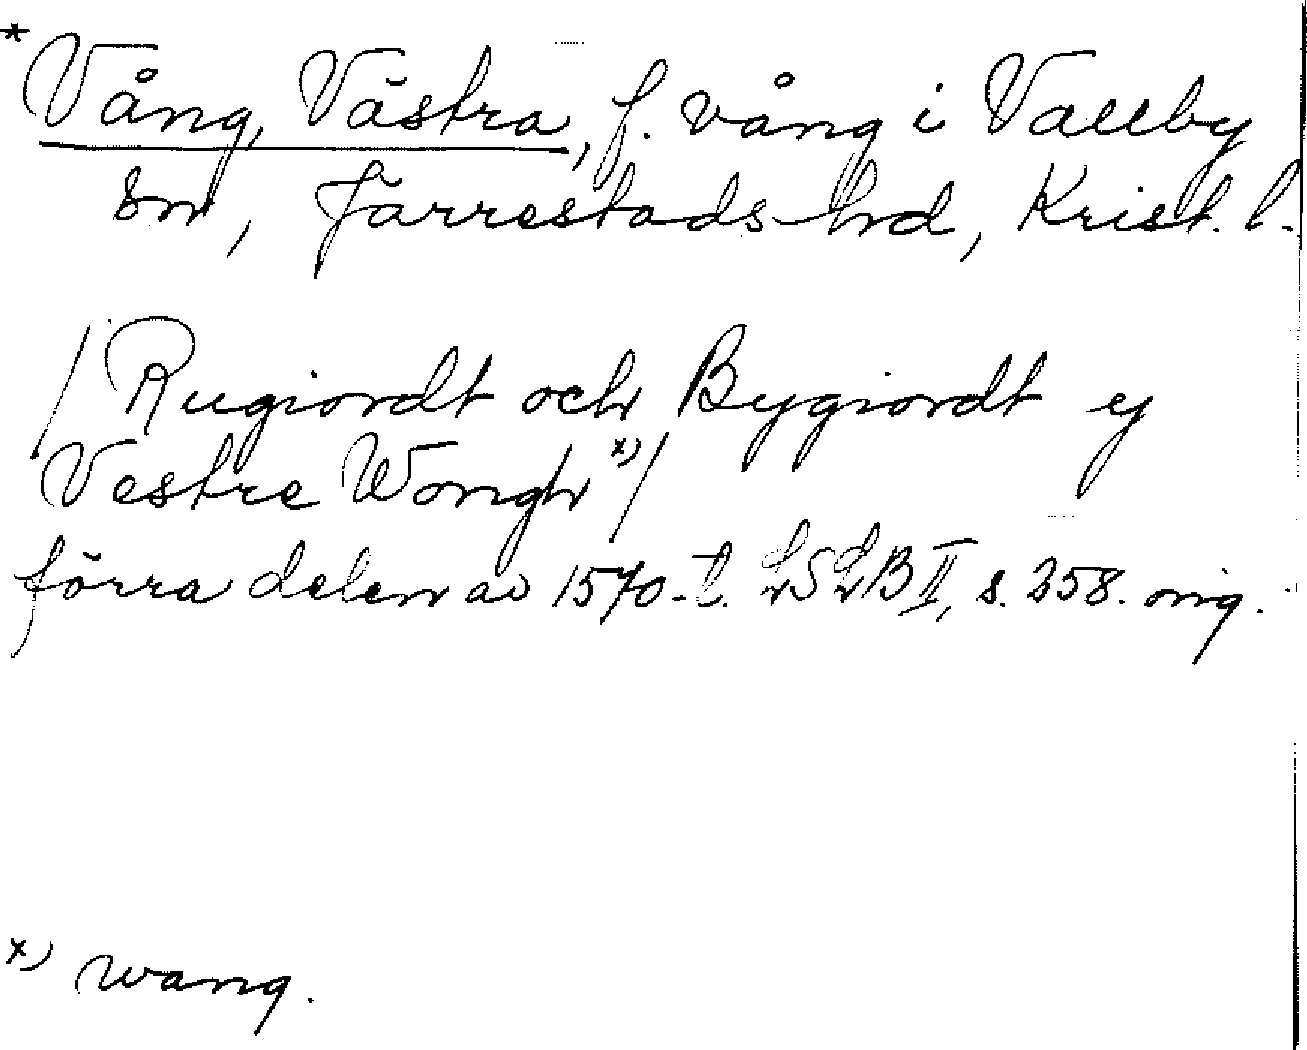 *Vång, Västra, f. vång i Vallby
sn, Järrestads hd, Krist. l.
/Rugiordt och Bygiordt y
Vestre Wongh x)/
förra delen av 1570-t. LSLB II, s. 358. orig.
x) wang.